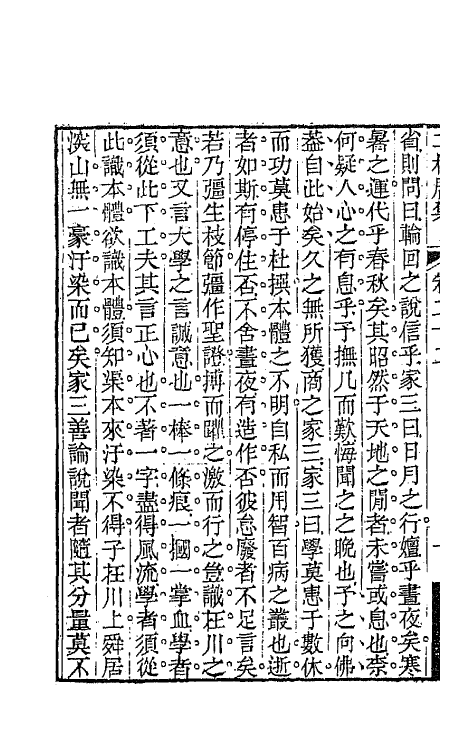 省則問曰輪回之說信乎家三曰日月之行嬗乎晝夜矣寒
暑之運代乎春秋矣其昭然于天地之閒者未嘗或息也柰
何疑人心之有息乎予撫几而歎悔聞之之晚也予之向佛
葢自此始矣久之無所獲商之家三家三曰學莫患于數休
而功莫患于杜撰本體之不明自私而用智百病之叢也逝
者如斯有停住否不舍晝夜有造作否彼怠廢者不足言矣
若乃彊生枝節彊作聖證搏而躍之激而行之豈識在川之
意也又言大學之言誠意也一棒一條痕一摑一掌血學者
須從此下工夫其言正心也不著一字盡得風流學者須從
此識本體欲識本體須知渠本來汙染不得子在川上舜居
深山無一豪汙染而已矣家三善論說聞者隨其分量莫不